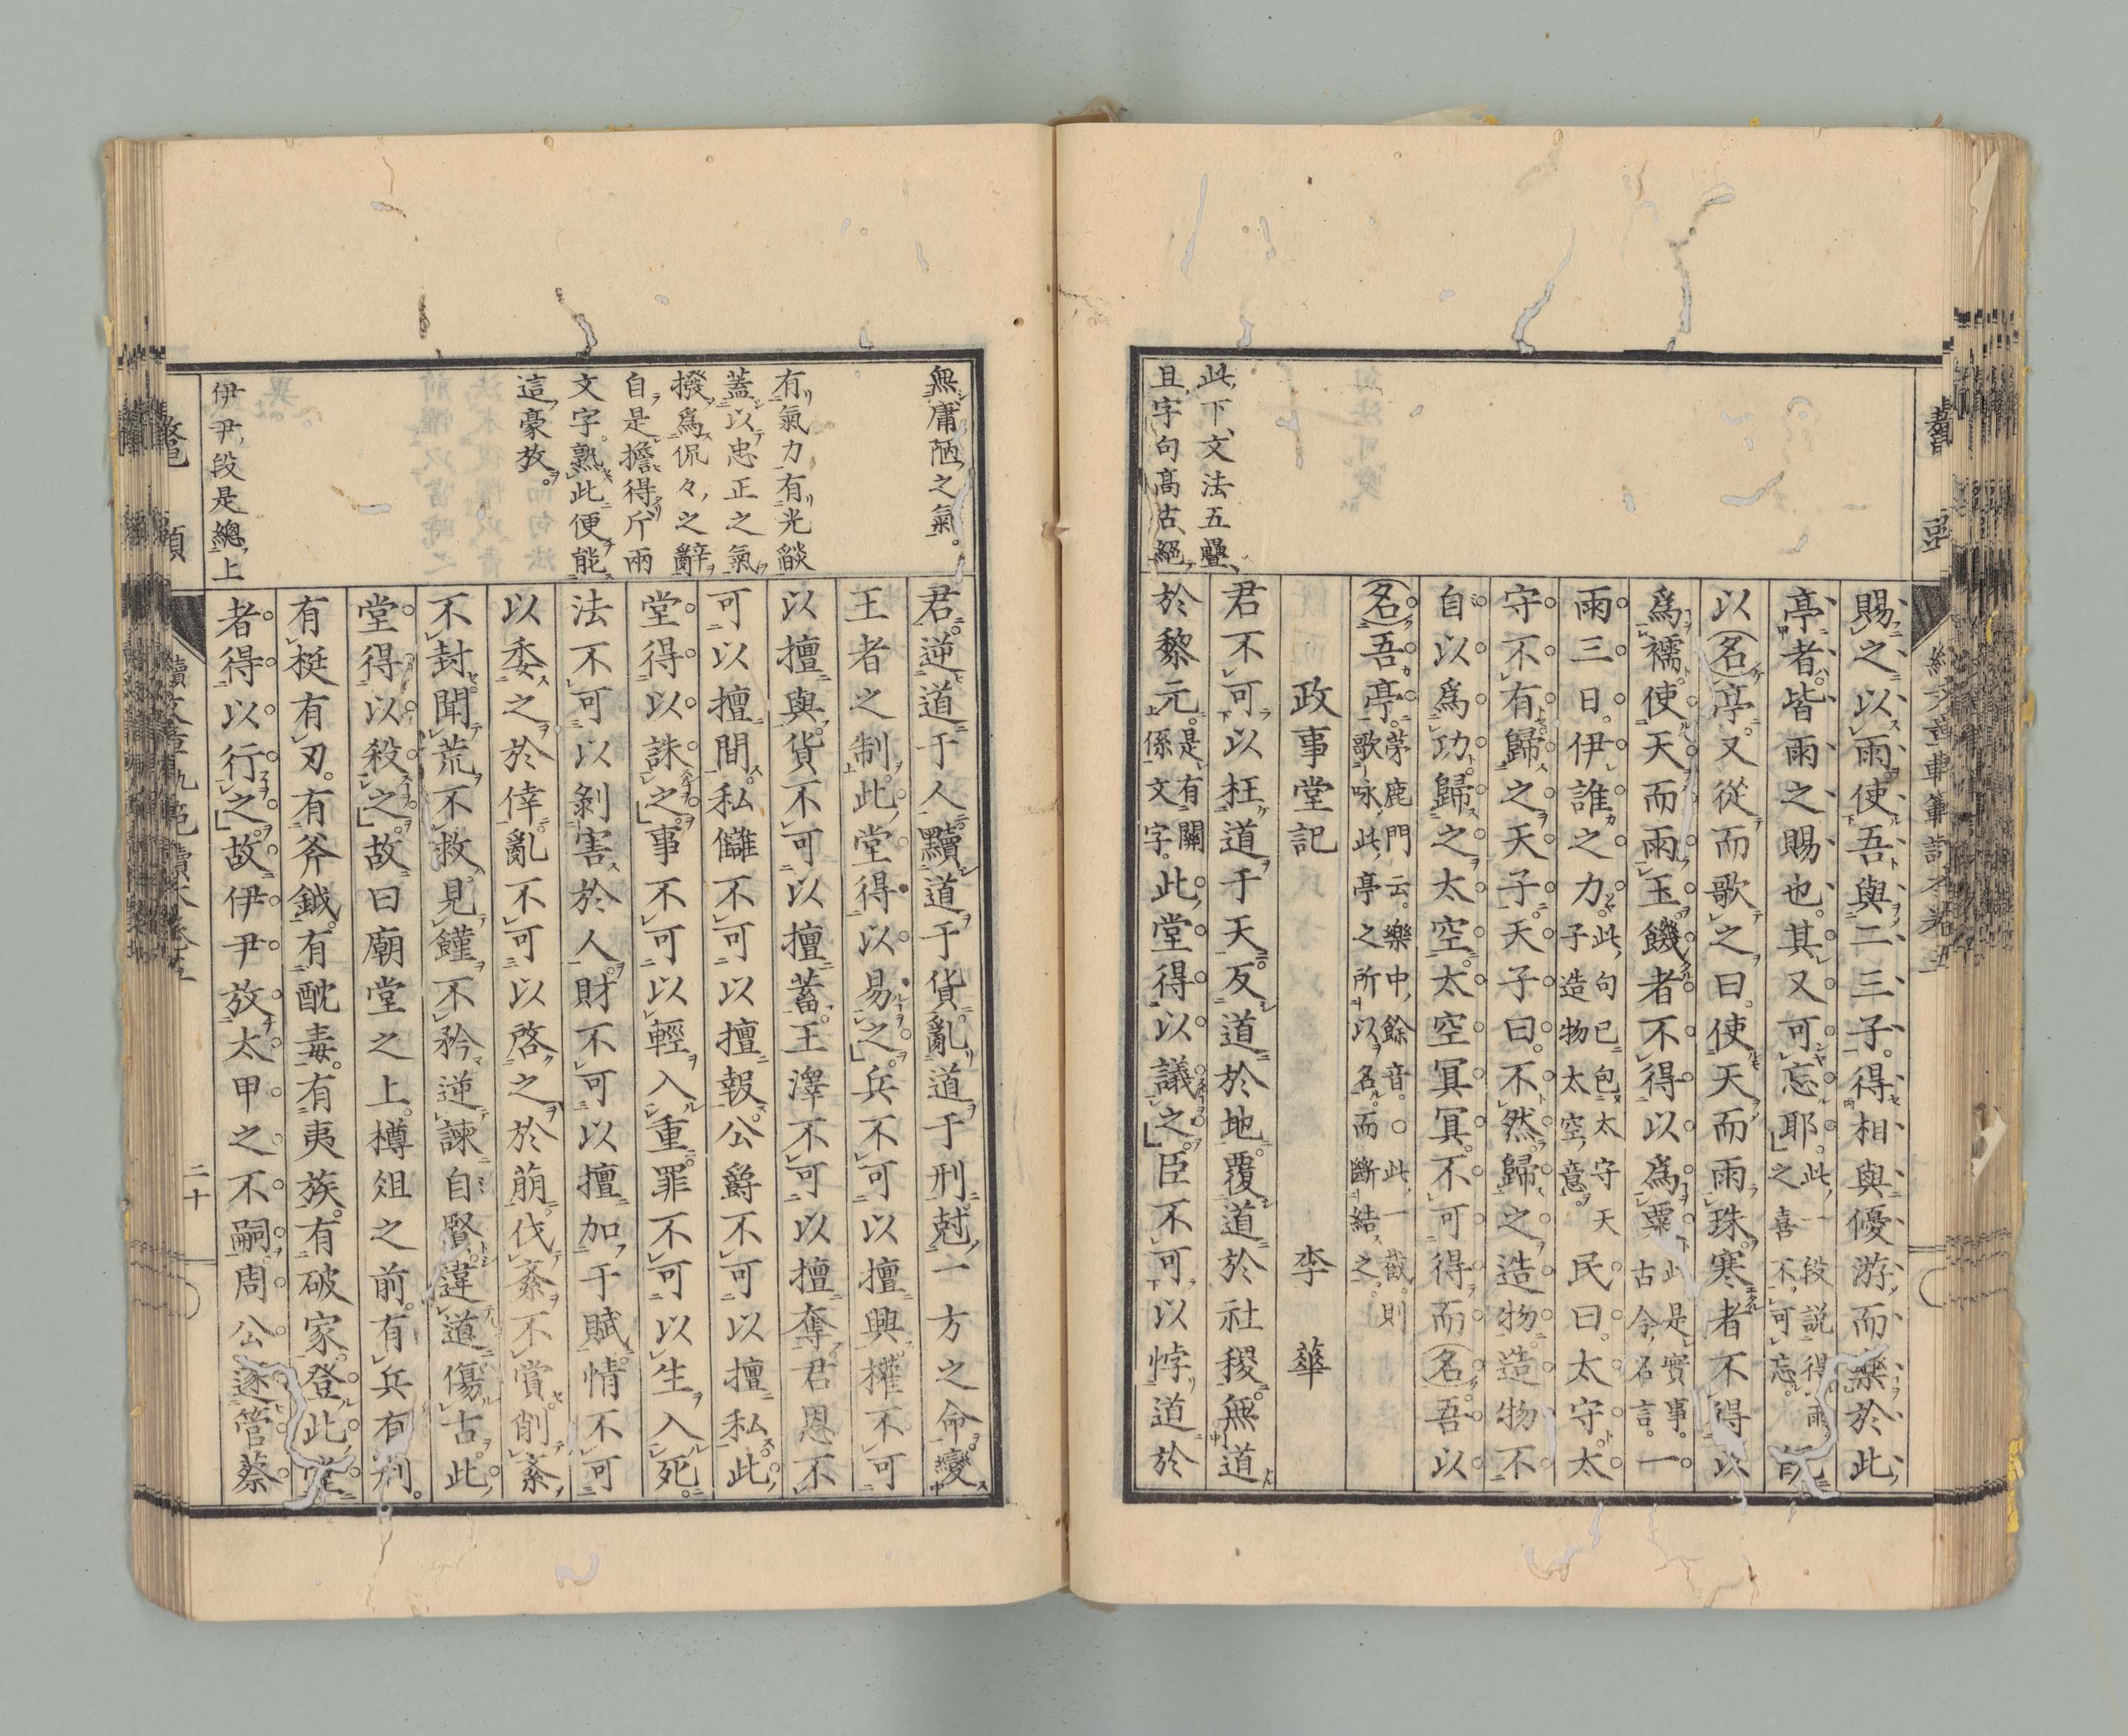 賜之以雨使吾與二三子得相與優游而樂於此
亭者皆雨之賜也其又可忘耶此一段説得雨之喜不可忘既
以名亭又從而歌之曰使天而雨珠寒者不得以
爲襦使天而雨玉饑者不得以爲粟此是實事古今名言一
雨三日伊誰之力此句已包太守天子造物太空意民曰太守太
守不有歸之天子天子曰不然歸之造物造物不
自以爲功歸之太空太空冥冥不可得而名吾以
名吾亭茅鹿門云樂中餘音○此一截則歌咏此亭之所以名而斷結之
政事堂記 李華
此下文法五疊
且字句高古絕
君不可以枉道于天反道於地覆道於社稷無道
於黎元是有關係文字此堂得以議之臣不可以悖道於
無庸陋之氣
君逆道于人黷道于貨亂道于刑尅一方之命變
王者之制此堂得以易之兵不可以擅興權不可
有氣力有光燄
蓋以忠正之氣
撥爲侃々之辭
自是擔得斤兩
文字熟此便能
這豪放
以擅與貨不可以擅蓄王澤不可以擅奪君恩不
可以擅間私讎不可以擅報公爵不可以擅私此
堂得以誅之事不可以輕入重罪不可以生入死
法不可以剝害於人財不可以擅加于賦情不可
以委之於倖亂不可以啓之於萠伐紊不賞削紊
不封聞荒不救見饉不矜逆諫自賢違道傷古此
堂得以殺之故曰廟堂之上樽俎之前有兵有刑
有梃有刃有斧鉞有酖毒有夷族有破家登此堂
伊尹段是總上
者得以行之故伊尹放太甲之不嗣周公逐管蔡
二十